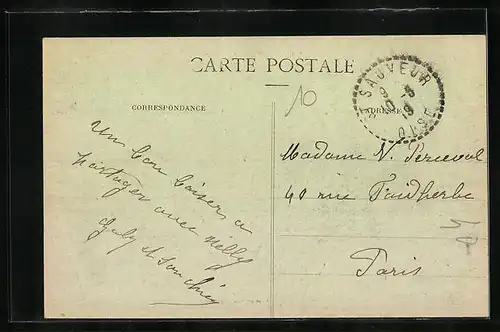 CARTE POSTALE
CORRESPONDANCE
ADRESSE
SAUVEUR
OISE
10
Un bon baiser a
partager avec Nelly
Gaby et
Madame V. Perceval
40 rue Faidherbe
Paris